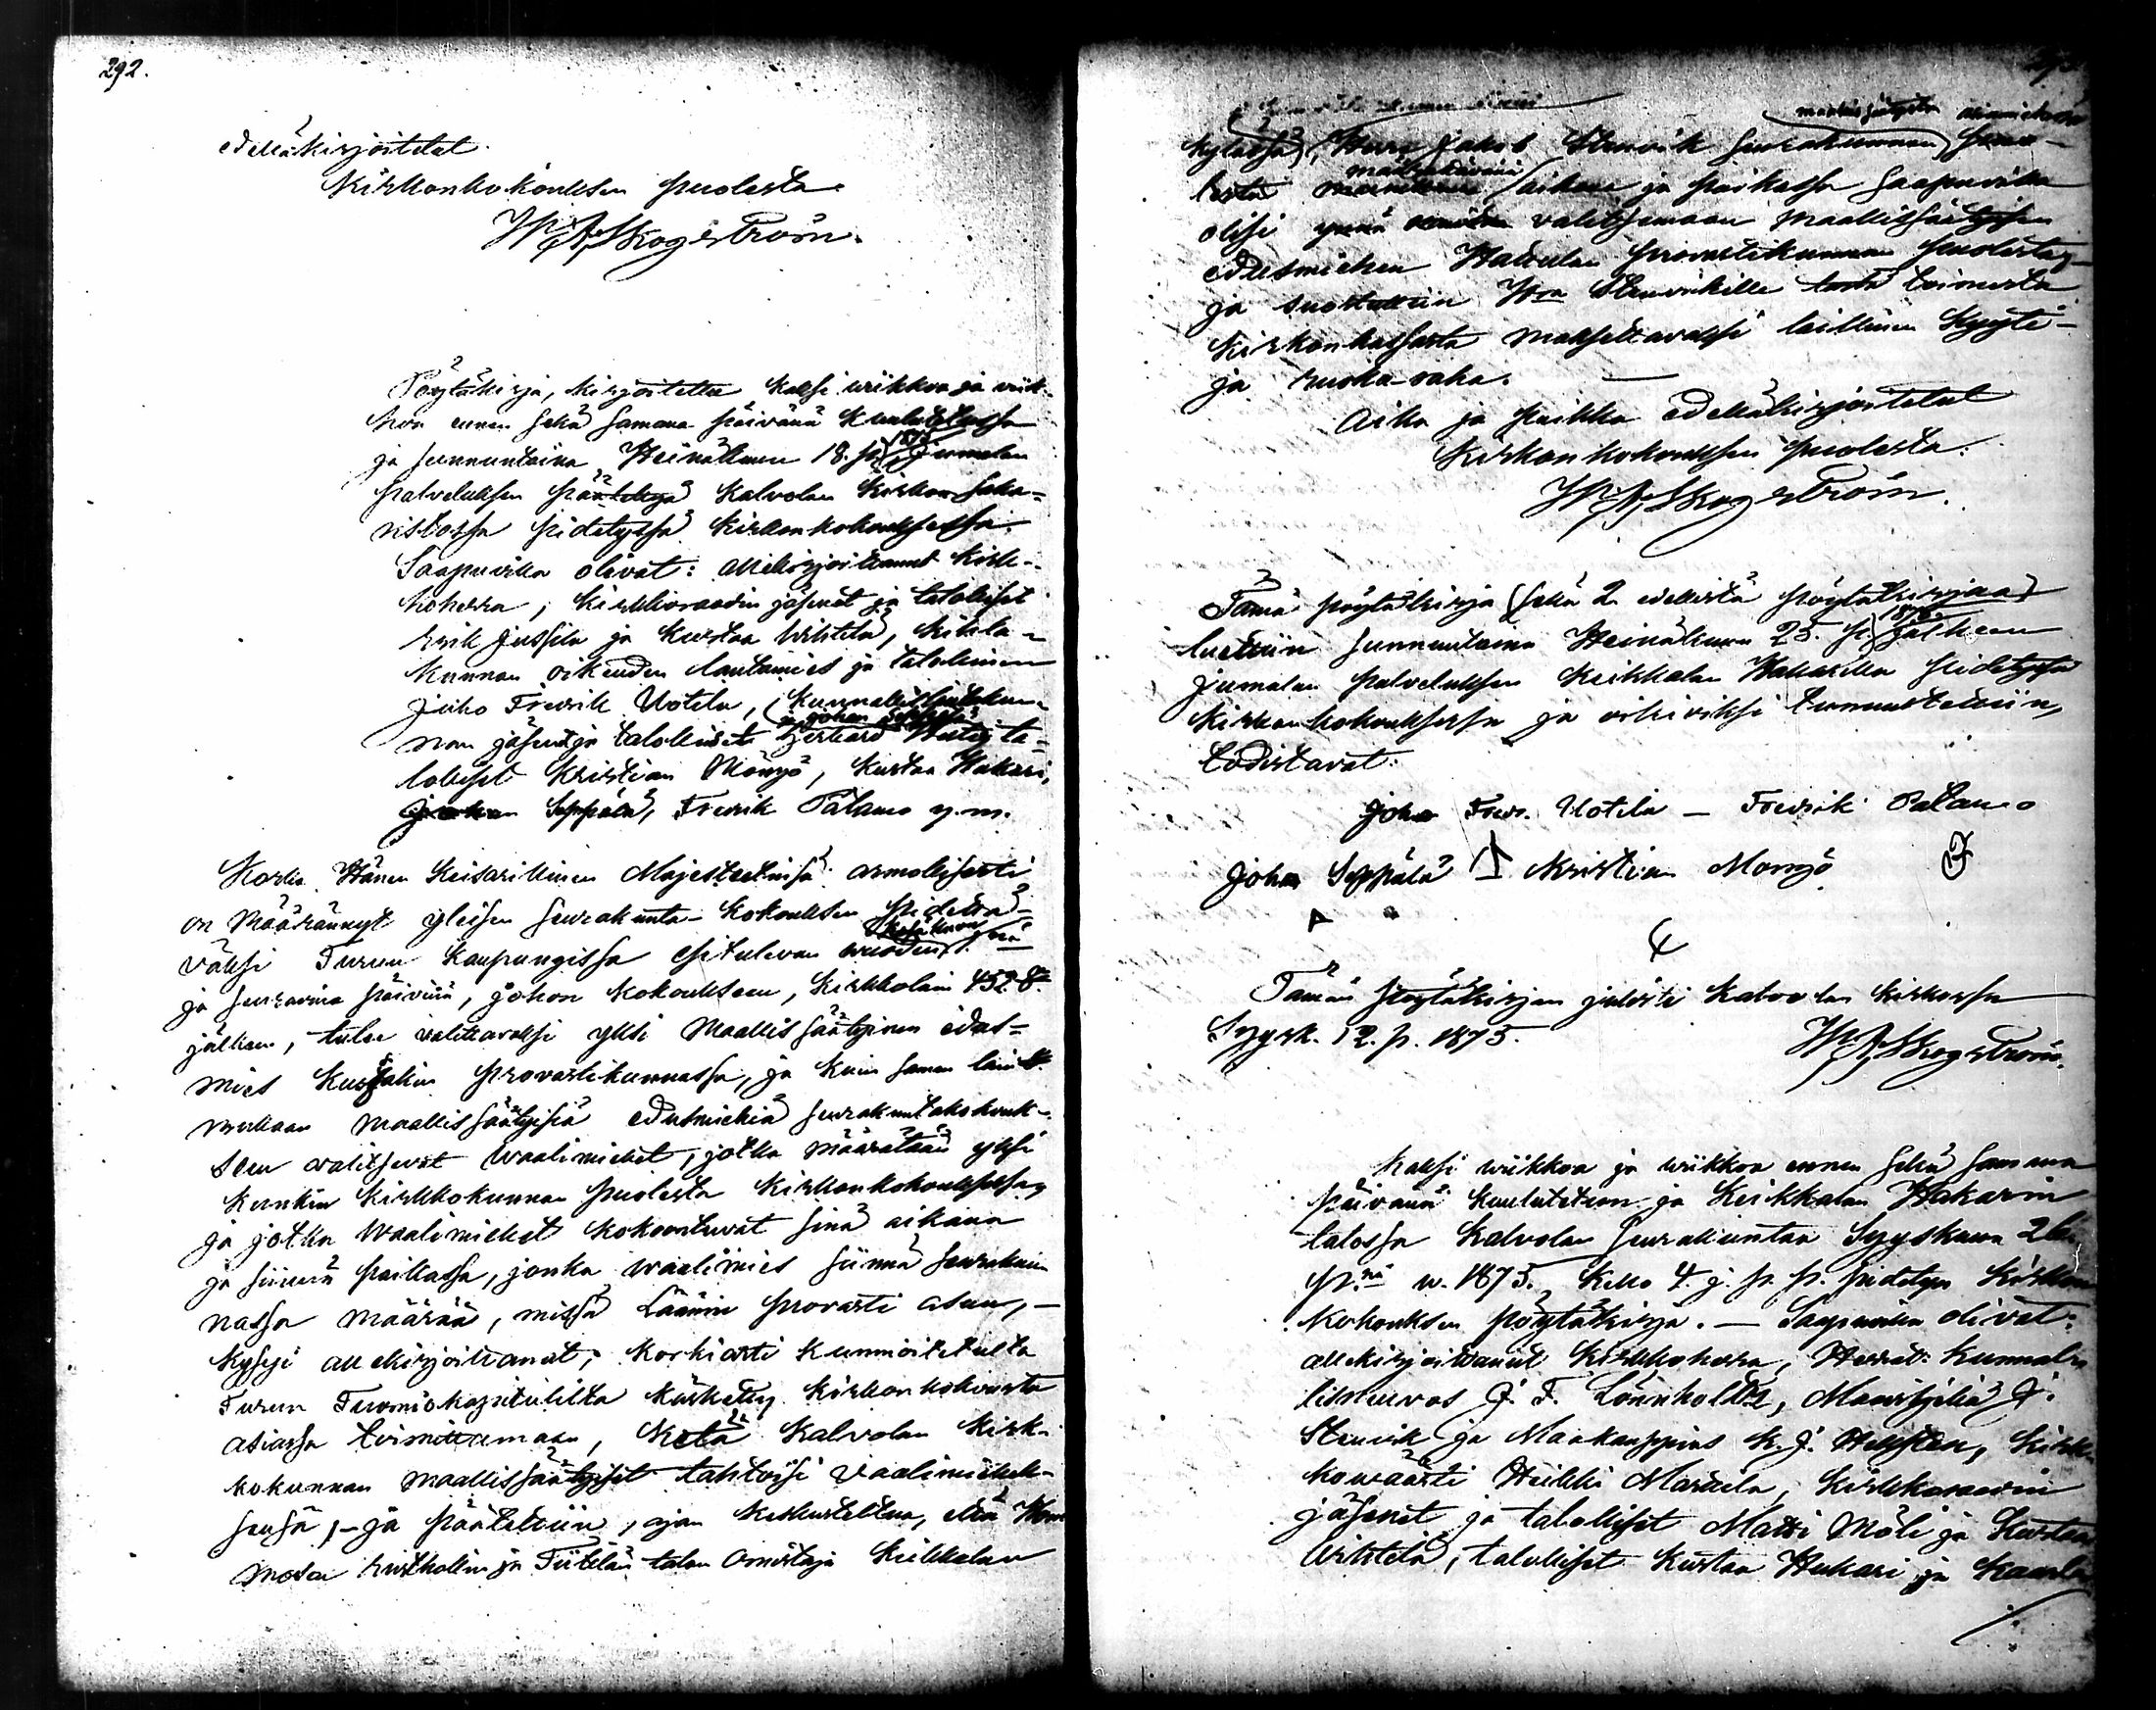 292.
edelläkirjoitetut.
Kirkonkokouksen puolesta
W A Skogström.
Pöytäkirja, kirjoitettu kaksi wiikkoa ja wiik-
koa ennen sekä samana päivänä kuulutetussa
ja sunnuntaina Heinäkuun 18. p. 1875 Jumalan
palveluksen päätettyä Kalvolan kirkon saka-
ristossa pidetyssä kirkonkokouksessa.
Saapuvilla olivat: allekirjoittanut Kirk-
koherra, kirkkoraadin jäsenät ja talolliset
Erik Jussila ja Kustaa Wihtilä, kihla-
kunnan oikeuden lautamies ja talollinen
Juho Fredrik Uotila, Kunnallislautakun-
ja Johan Seppälä
nan jäsenet ja talolliset Gerhard ta-
lolliset Kristian Monyö, Kustaa Hakari,
Johan Seppälä, Fredrik Palamo y.m.
Koska Hänen Keisarillinen Majesteetinsa armollisesti
on määrännyt yleisen seurakunta-kokouksen pidettä-
väksi Turun kaupungissa esitulevan vuoden Kesäkuun 1 nä
ja seuraavina päivinä, johon kokoukseen, Kirkkolain 452 §.
jälkeen, tulee valittavaksi yksi maallissäätyinen edus-
mies kustakin provastikunnassa, ja kuin saman lain §.
mukaan maallissäätyisiä edusmiehiä seurakuntakokouk-
seen valitsevat waalimiehet, jotka määrätään yksi
kunkin kirkkokunnan puolesta kirkonkokouksessa,
ja jotka waalimiehet kokoontuvat sinä aikana
ja siinä paikassa, jonka waalimies siinä seurakun-
nassa määrää, missä Läänin provasti asuu, —
kysyi allekirjoittanut, korkiasti kunnioitetulta
Turun Tuomiokapitulilta käsketty kirkonkokousta
asiassa toimittamaan, ketä Kalvolan kirk-
kokunnan maallissäätyiset tahtoisi vaalimiehek-
sensä, — ja päätettiin, asian keskusteltua, että Hom-
man rusthollin ja Tiitilän talon omistaja Keikkalan
kylässä, Herra Jakob Stenvik seurakunnan maallissäätyisten asiamiehenä puo-
lesta määrättävänä aikana ja paikassa saapuvilla
olisi valitsemaan maallissäätyisen
edusmiehen Hattulan provastikunnan puolesta,
ja suostuttiin Hra Stenvikille tästä toimesta
kirkonkassasta maksettavaksi laillinen kyyti-
ja ruoka-raha.
Aika ja paikka edelläkirjoitetut
Kirkonkokouksen puolesta.
W A Skogström.
Tämä pöytäkirja (sekä 2 edellistä pöytäkirjaa)
luettiin sunnuntaina Heinäkuun 25. p. 1875 jälkeen
jumalan palveluksen Keikkalan Hakarilla pidetyssä
kirkonkokouksessa ja oikiaksi tunnustettiin,
todistavat:
Johan Fredr. Uotila — Fredrik Palamo
Johan Seppälä Kristian Monyö
Tämän pöytäkirjan julisti Kalvolan kirkossa
Syysk. 12. p. 1875.
W A Skogström.
Kaksi wiikkoa ja wiikkoa ennen sekä samana
päivänä kuulutetun ja Keikkalan Hakarin
talossa Kalvolan seurakuntaa Syyskuun 26
p:nä w. 1875. kello 4 j. p. p. pidetyn kirkon
kokouksen pöytäkirja. — Saapuvilla olivat:
allekirjoittanut Kirkkoherra, Herrat: Kunnallis-
neuvos J. F. Lönnholtz, Maanviljeliä J.
Stenvik ja Maakauppias K. J. Hellsten, Kirk-
kowäärti Heikki Markila, Kirkkoraadin
jäsenet ja talolliset Matti Möli ja Kustaa
Wihtilä, talolliset Kustaa Hakari ja Kaarle